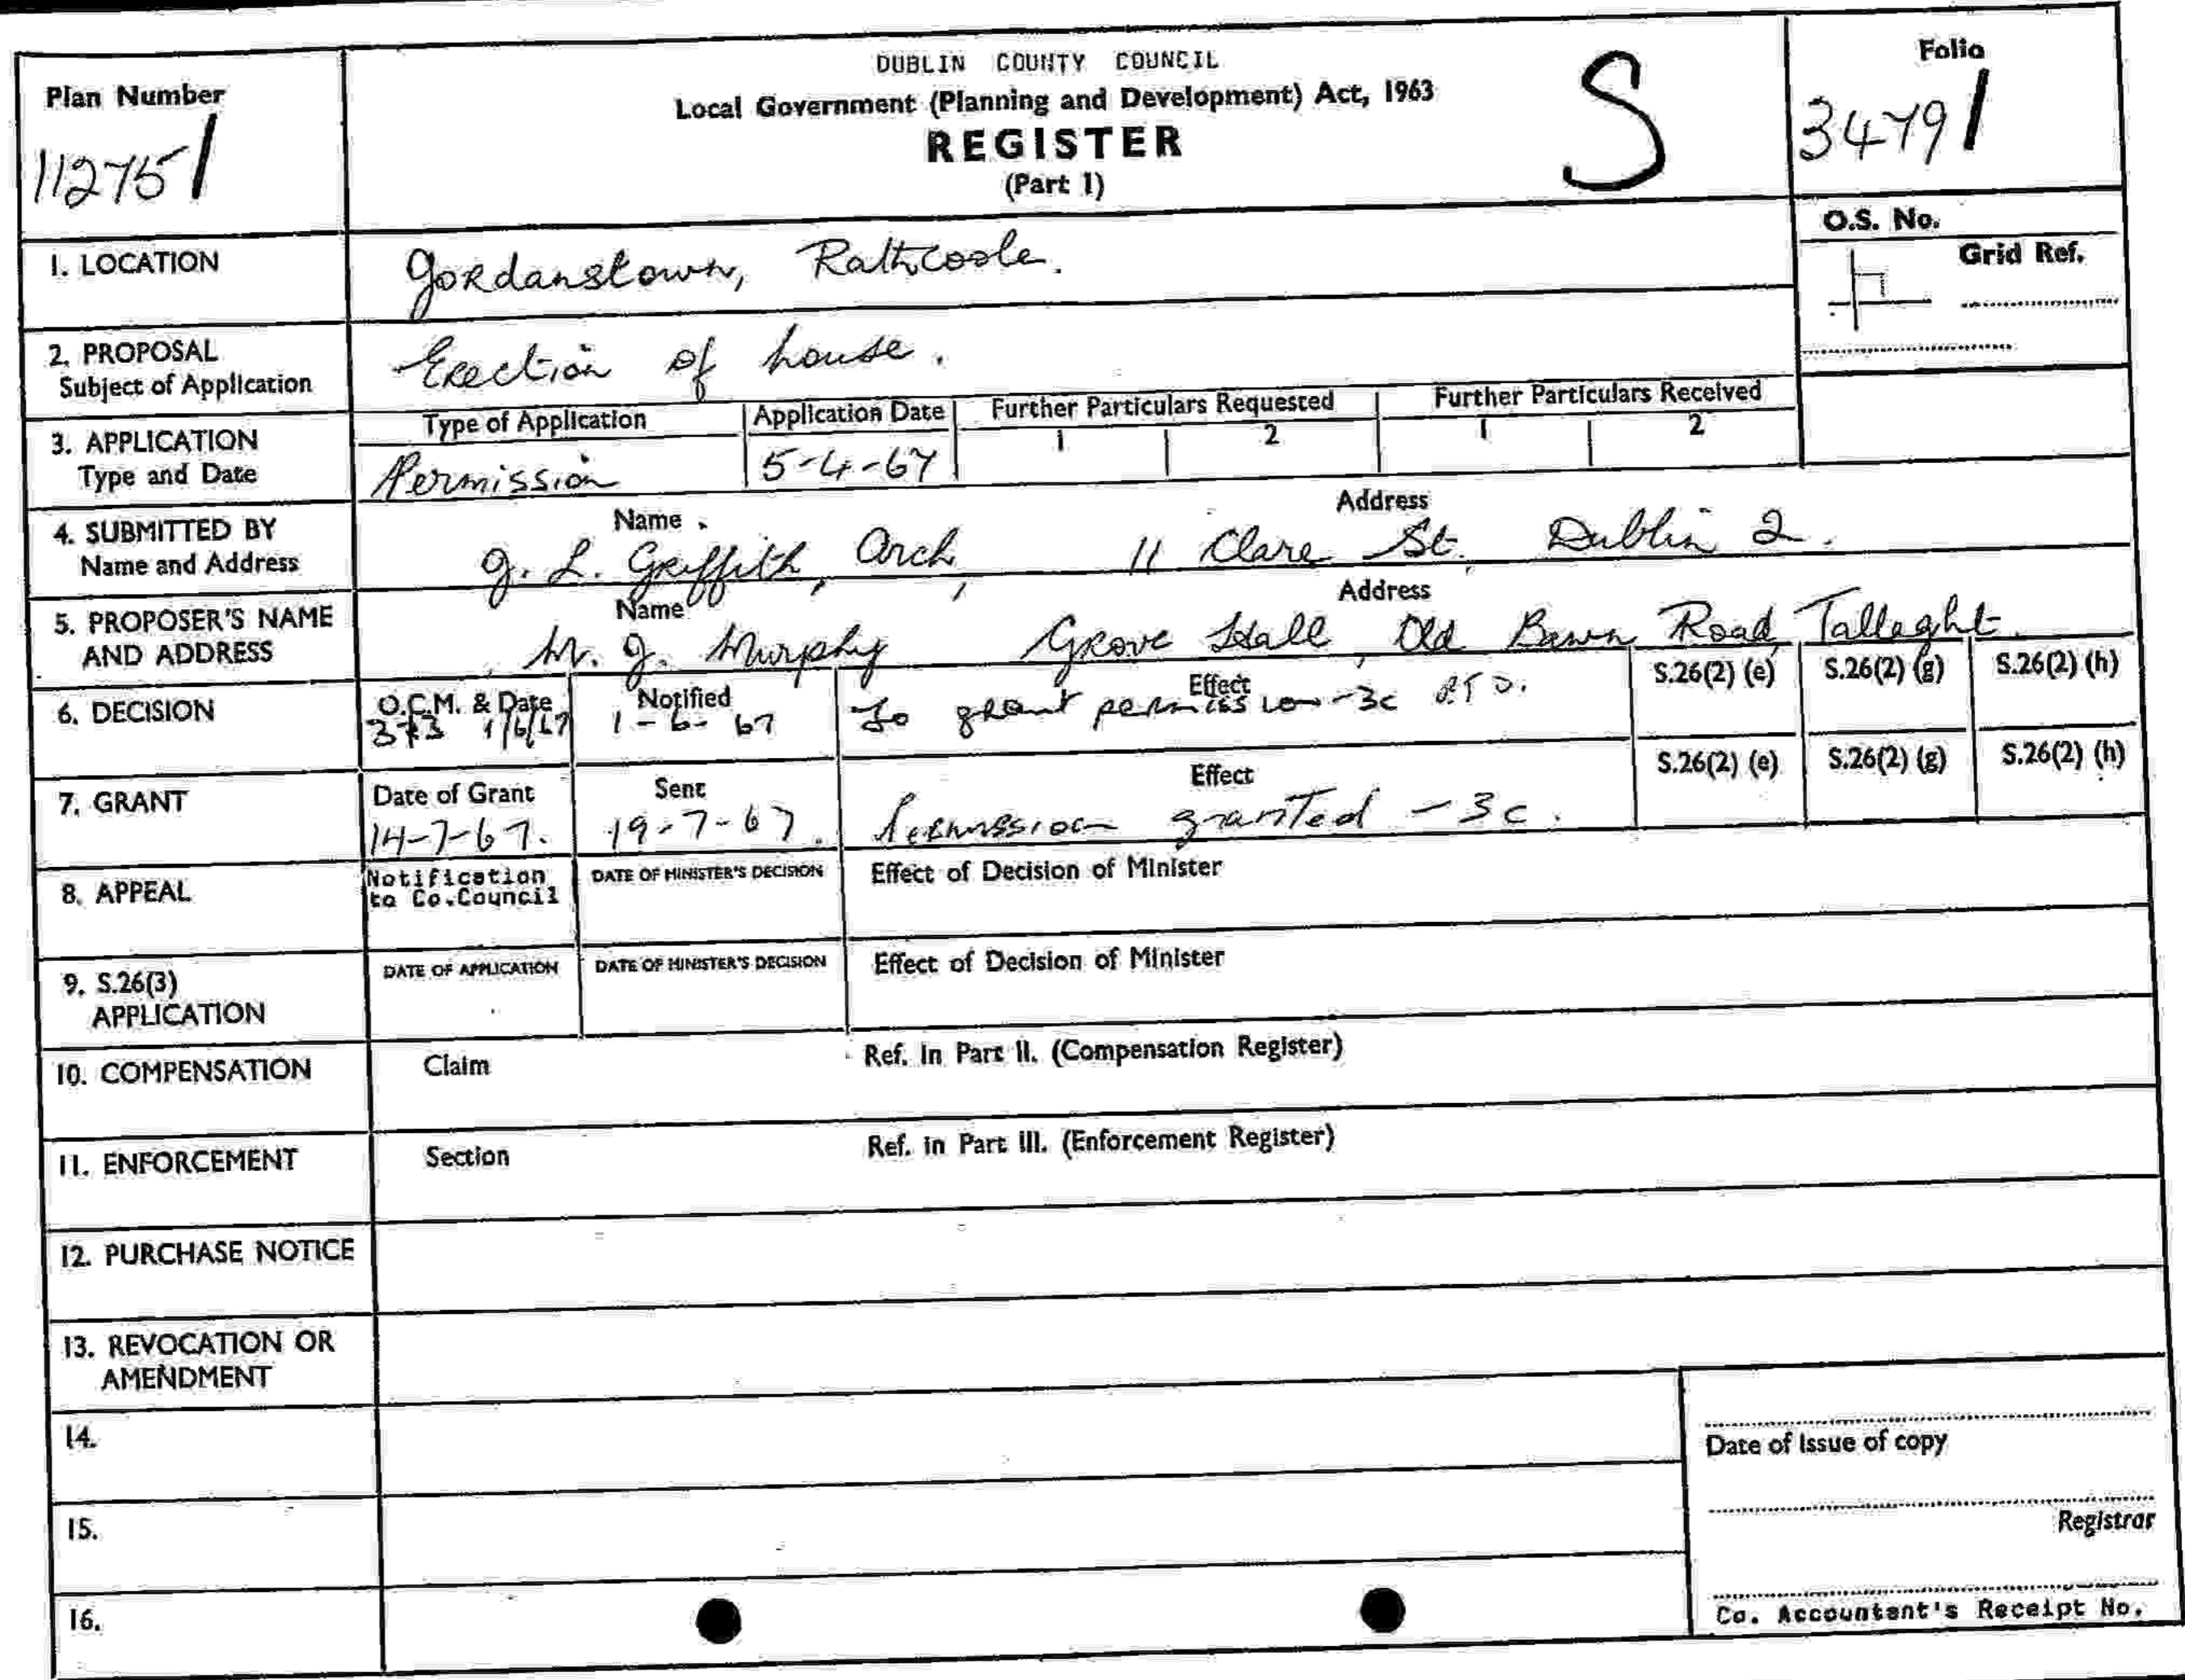 DUBLIN COUNTY COUNCIL
Local Government (Planning and Development) Act, 1963
REGISTER
(Part 1)
S
Plan Number
11275/
Folio
3479/
O.S. No.
Grid Ref.
1. LOCATION
Jordanstown, Rathcoole.
2. PROPOSAL
Subject of Application
Erection of house.
3. APPLICATION
Type and Date
Type of Application
Permission
Application Date
5-4-67
Further Particulars Requested
1 2
Further Particulars Received
1 2
4. SUBMITTED BY
Name and Address
Name Address
J. L. Griffith, Arch, 11 Clare St. Dublin 2.
5. PROPOSER'S NAME
AND ADDRESS
Name Address
M. J. Murphy Grove Hall, Old Bawn Road, Tallaght.
6. DECISION
O.C.M. & Date
373 1/6/67
Notified
1-6-67
Effect
To grant permission - 3c P.T.O.
S.26(2) (e) S.26(2) (g) S.26(2) (h)
7. GRANT
Date of Grant
14-7-67.
Sent
19-7-67.
Effect
Permission granted - 3c.
S.26(2) (e) S.26(2) (g) S.26(2) (h)
8. APPEAL
Notification
to Co.Council
DATE OF MINISTER'S DECISION
Effect of Decision of Minister
9. S.26(3)
APPLICATION
DATE OF APPLICATION
DATE OF MINISTER'S DECISION
Effect of Decision of Minister
10. COMPENSATION
Claim
Ref. in Part II. (Compensation Register)
11. ENFORCEMENT
Section
Ref. in Part III. (Enforcement Register)
12. PURCHASE NOTICE
13. REVOCATION OR
AMENDMENT
14.
15.
16.
Date of issue of copy
Registrar
Co. Accountant's Receipt No.